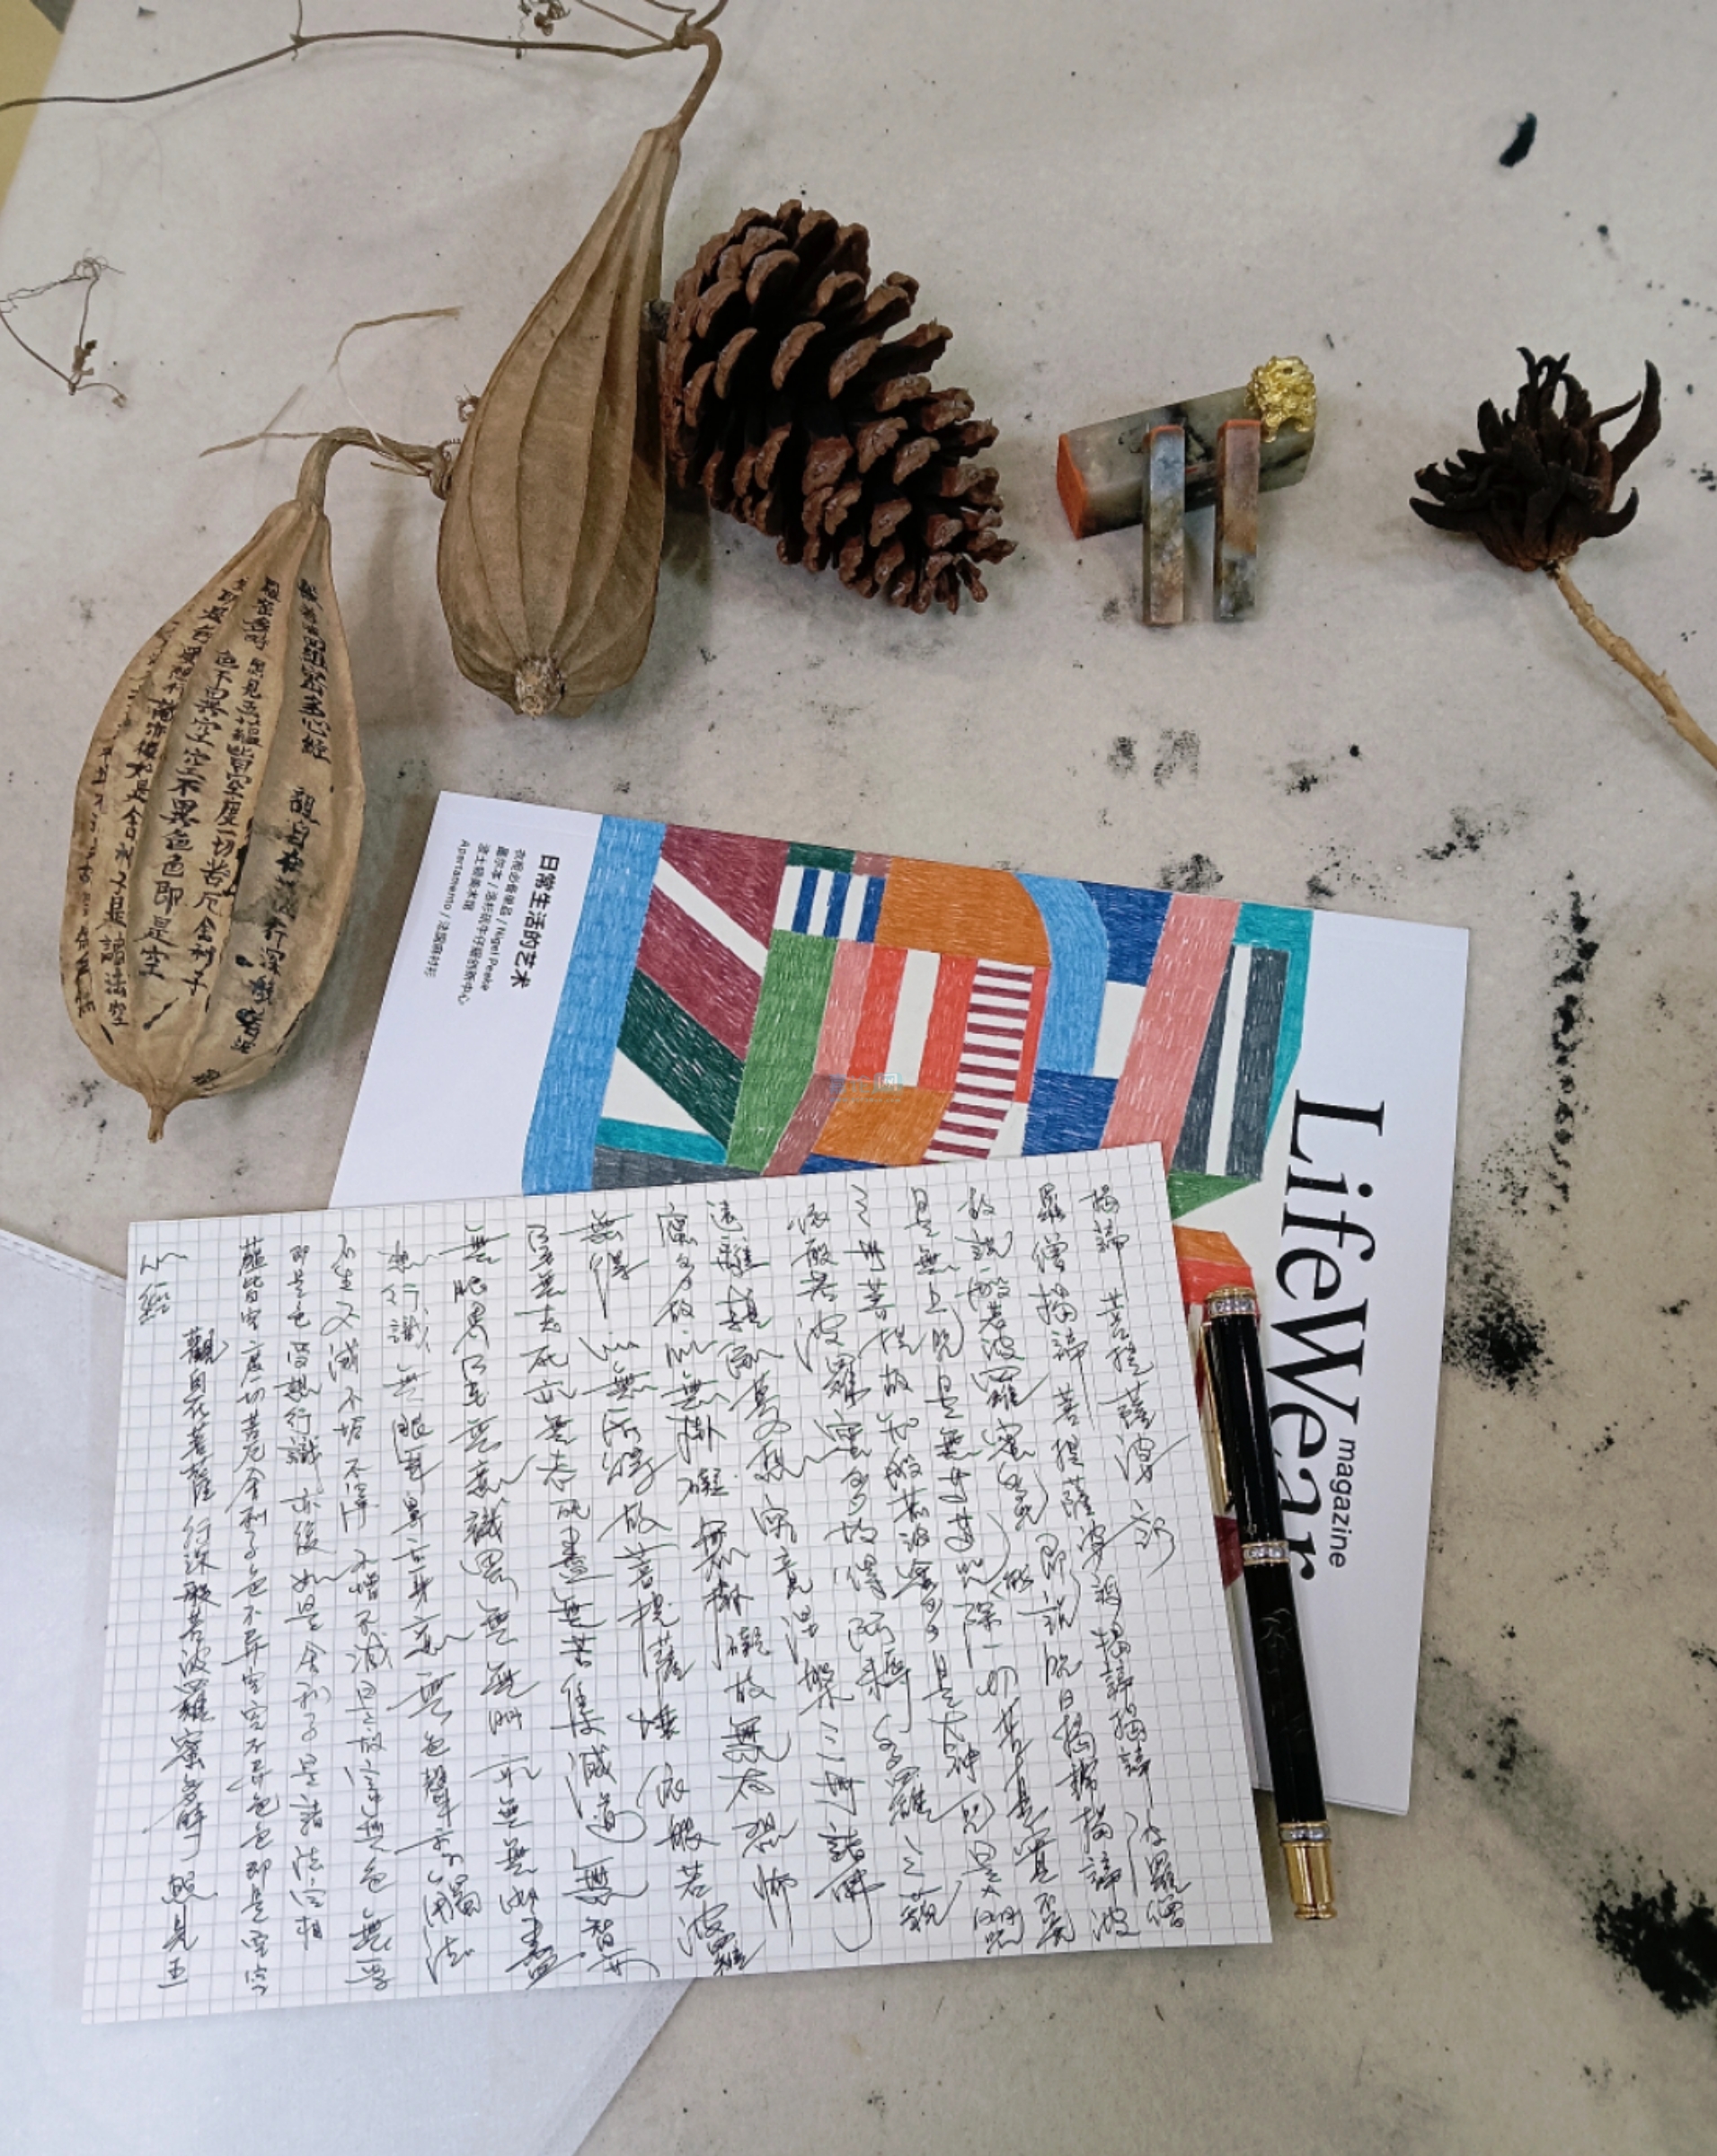 般若波羅蜜多心經 觀自在菩薩行深般若波
羅蜜多時 照見五蘊皆空度一切苦厄舍利子
色不異空空不異色色即是空
即是色受想行識亦復如是舍利子是諸法空
日常生活的艺术
衣橱必备单品 / Nigel Peake
墨尔本 / 洛杉矶牛仔服创新中心
波士顿美术馆
Apartamento / 法国麻衬衫
LifeWear
magazine
心經
觀自在菩薩 行深般若波羅蜜多時 照見五
蘊皆空度一切苦厄舍利子色不异空空不异色色即是空空
即是色受想行識亦復如是舍利子是諸法空相
不生不滅不垢不淨不增不減是故空中無色無受
想行識無眼耳鼻舌身意無色聲香味觸法
無眼界乃至無意識界無無明亦無無明盡
乃至無老死亦無老死盡無苦集滅道無智亦
無得以無所得故菩提薩埵依般若波羅
蜜多故心無掛礙無掛礙故無有恐怖
遠離顛倒夢想究竟涅槃三世諸佛
依般若波羅蜜多故得阿耨多羅三藐
三菩提故知般若波羅蜜多是大神咒是大明咒
是無上咒是無等等咒能除一切苦真實不虛
故說般若波羅蜜多咒即說咒曰揭諦揭諦波
羅僧揭諦菩提薩婆訶揭諦揭諦波羅僧
揭諦 菩提薩婆訶